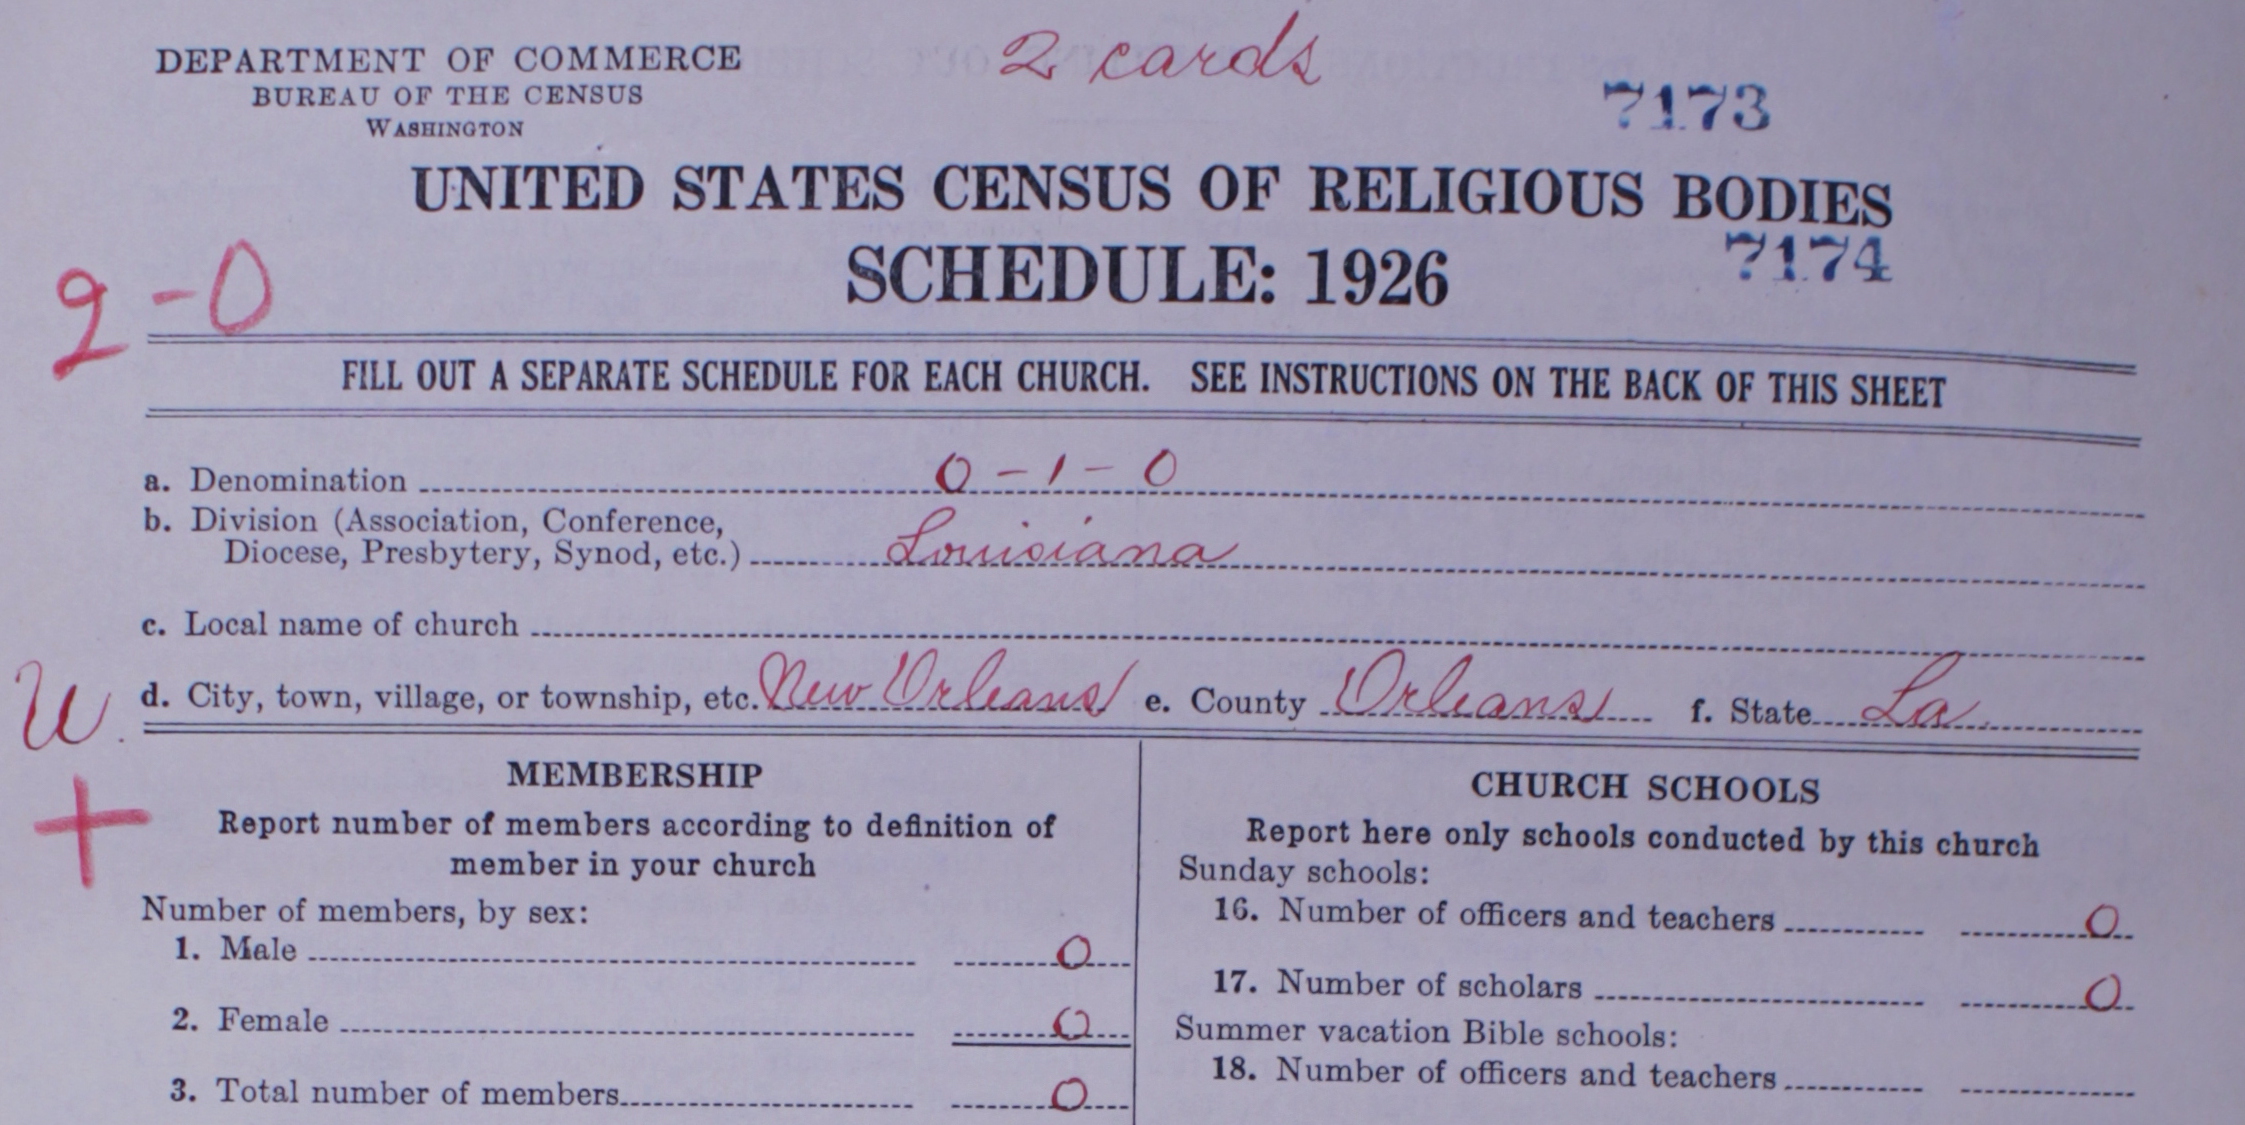 2 cards
DEPARTMENT OF COMMERCE
BUREAU OF THE CENSUS
WASHINGTON
7173
UNITED STATES CENSUS OF RELIGIOUS BODIES
SCHEDULE: 1926
7174
2-0
FILL OUT A SEPARATE SCHEDULE FOR EACH CHURCH. SEE INSTRUCTIONS ON THE BACK OF THIS SHEET
a. Denomination 0-1-0
b. Division (Association, Conference,
Diocese, Presbytery, Synod, etc.) Louisiana
c. Local name of church
U d. City, town, village, or township, etc. New Orleans e. County Orleans f. State La.
+
MEMBERSHIP
Report number of members according to definition of
member in your church
Number of members, by sex:
1. Male 0
2. Female 0
3. Total number of members 0
CHURCH SCHOOLS
Report here only schools conducted by this church
Sunday schools:
16. Number of officers and teachers 0
17. Number of scholars 0
Summer vacation Bible schools:
18. Number of officers and teachers